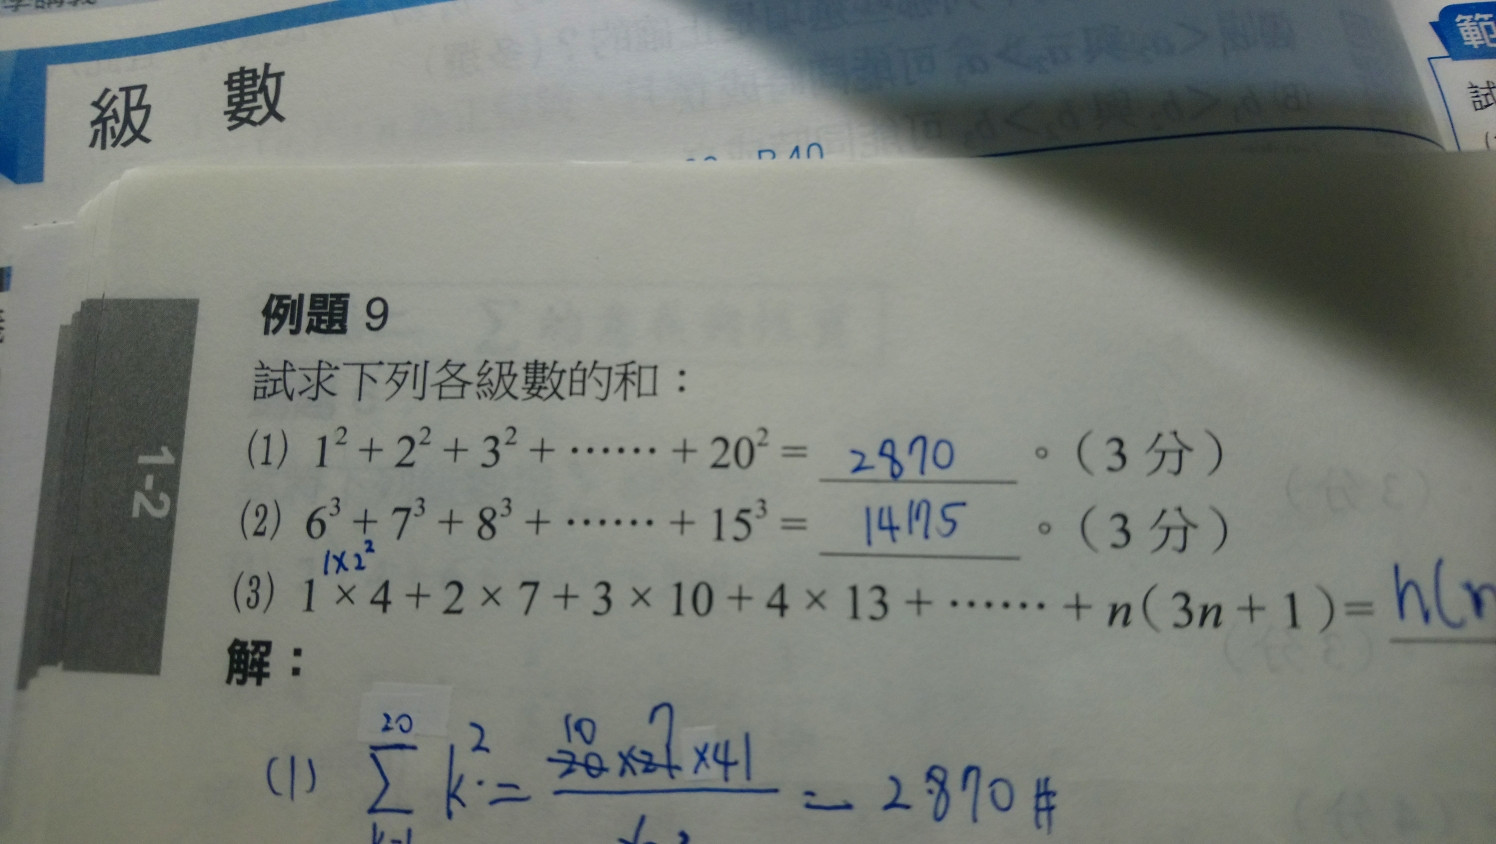 級 數
範
試
例題 9
試求下列各級數的和：
(1) 1² + 2² + 3² + …… + 20² = 2870 。（3 分）
(2) 6³ + 7³ + 8³ + …… + 15³ = 14175 。（3 分）
1×2²
(3) 1 × 4 + 2 × 7 + 3 × 10 + 4 × 13 + …… + n（3n + 1）= n(n
1-2
解：
20 10 7
(1) Σ k² = 20×21×41 = 2870 #
k=1